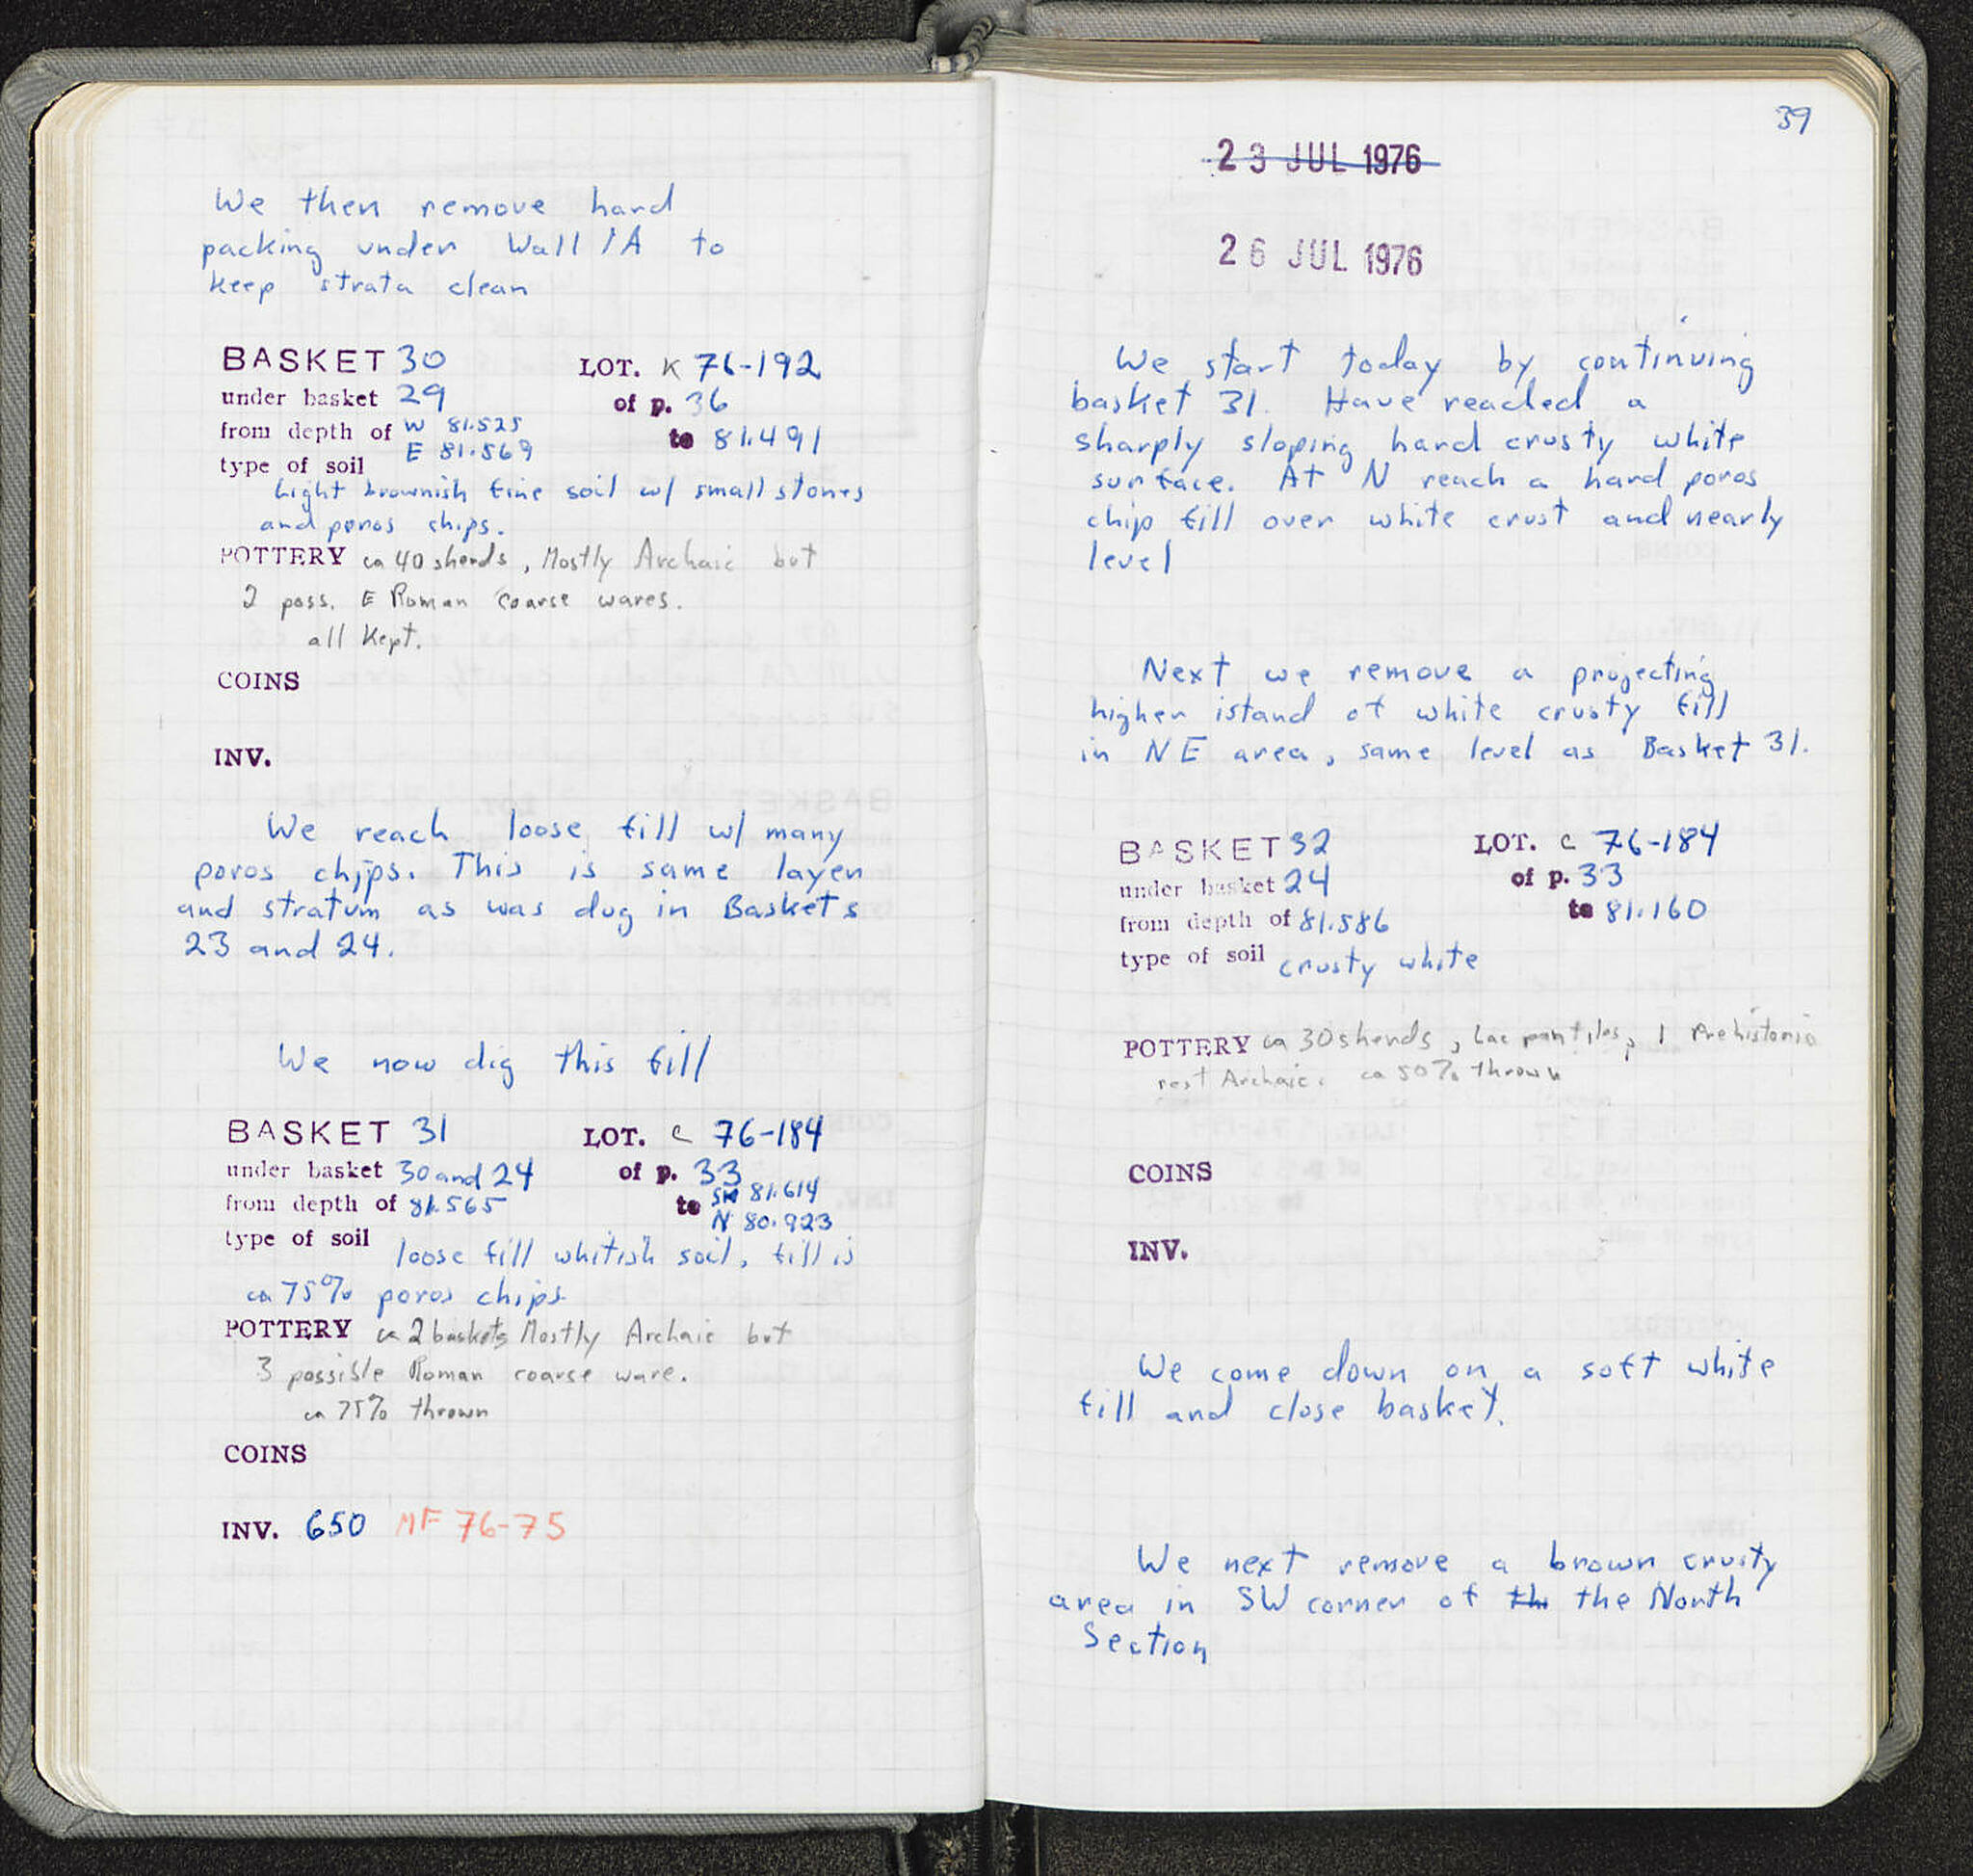 We then remove hard
packing under Wall 1A to
keep strata clean
BASKET 30 LOT. K 76-192
under basket 29 of p. 36
from depth of W 81.525 to 81.491
E 81.569
type of soil
light brownish fine soil w/ small stones
and poros chips.
POTTERY ca 40 sherds, Mostly Archaic but
2 poss. E Roman coarse wares.
all kept.
COINS
INV.
We reach loose fill w/ many
poros chips. This is same layer
and stratum as was dug in Baskets
23 and 24.
We now dig this fill
BASKET 31 LOT. C 76-184
under basket 30 and 24 of p. 33
from depth of 81.565 to S 81.614
N 80.923
type of soil loose fill whitish soil, fill is
ca 75% poros chips
POTTERY ca 2 baskets Mostly Archaic but
3 possible Roman coarse ware.
ca 75% thrown
COINS
INV. 650 MF 76-75
39
23 JUL 1976
26 JUL 1976
We start today by continuing
basket 31. Have reached a
sharply sloping hard crusty white
surface. At N reach a hard poros
chip fill over white crust and nearly
level
Next we remove a projecting
higher island of white crusty fill
in NE area, same level as Basket 31.
BASKET 32 LOT. C 76-184
under basket 24 of p. 33
from depth of 81.586 to 81.160
type of soil crusty white
POTTERY ca 30 sherds, Lac pantiles, 1 Prehistoric
rest Archaic. ca 50% thrown
COINS
INV.
We come down on a soft white
fill and close basket.
We next remove a brown crusty
area in SW corner of th the North
Section